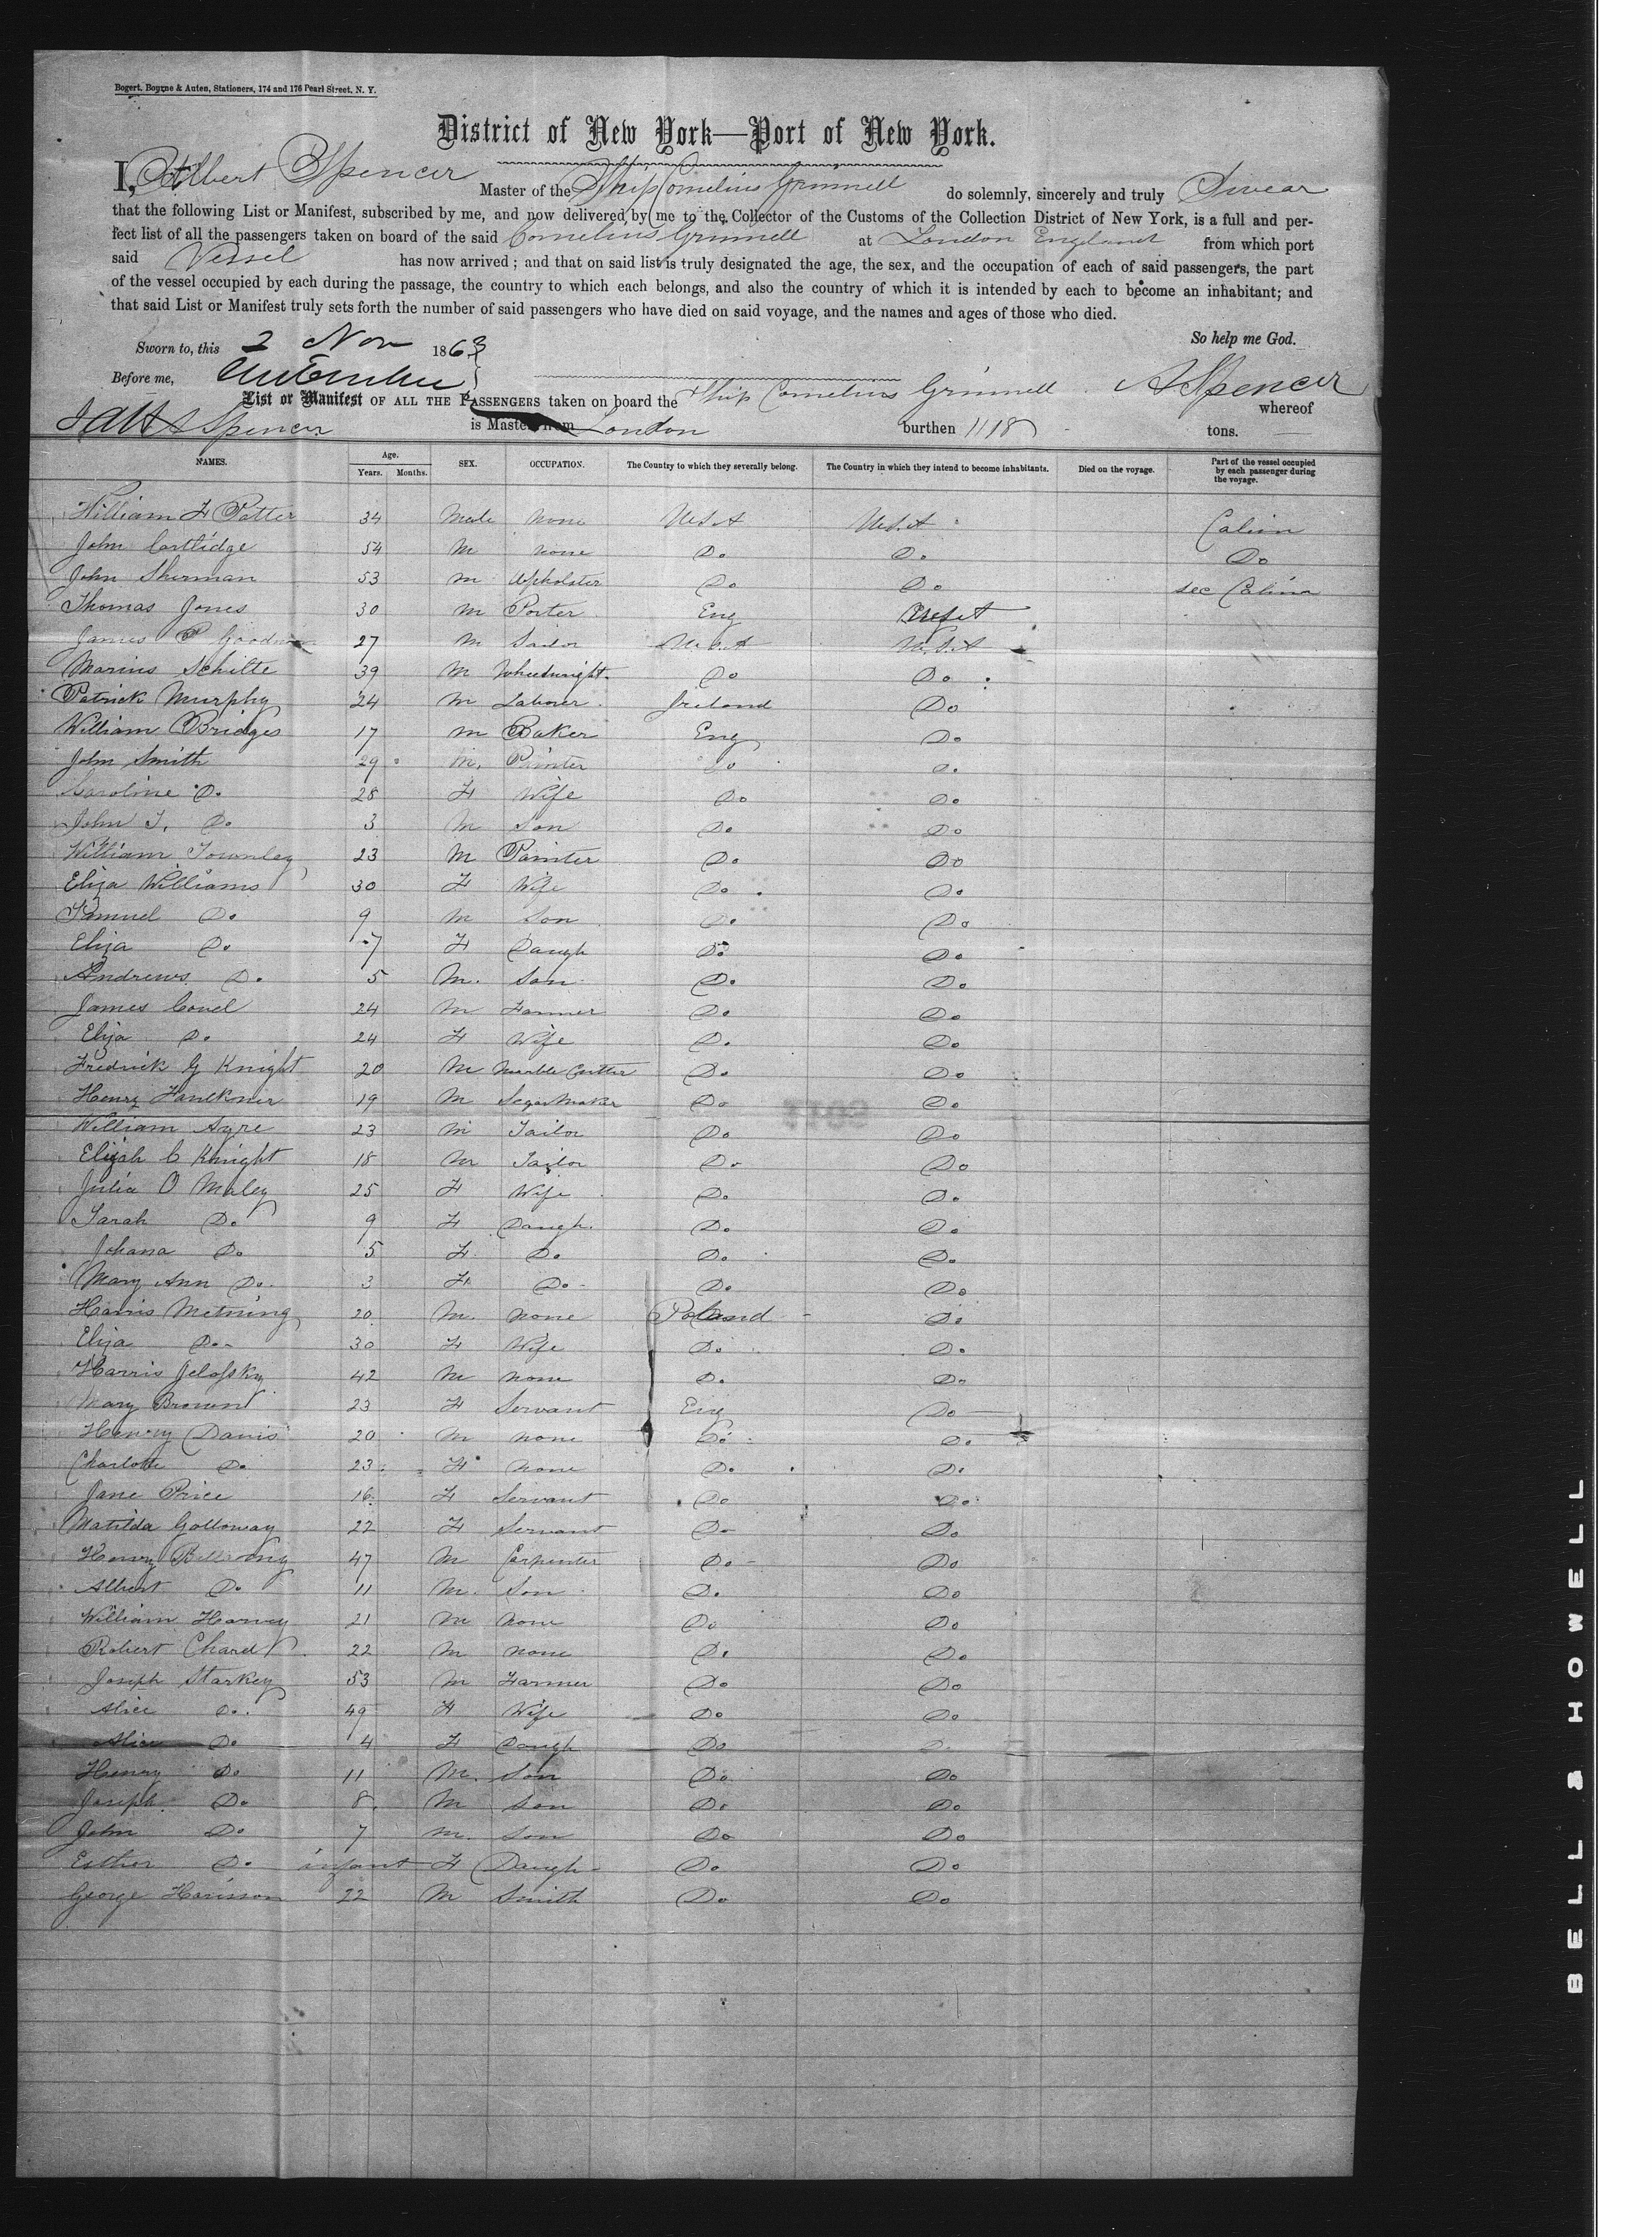 Bogert, Bourne & Auten, Stationers, 174 and 176 Pearl Street, N. Y.
District of New York—Port of New York.
I, Albert Spencer Master of the Ship Cornelius Grinnell do solemnly, sincerely and truly Swear
that the following List or Manifest, subscribed by me, and now delivered by me to the Collector of the Customs of the Collection District of New York, is a full and per-
fect list of all the passengers taken on board of the said Cornelius Grinnell at London England from which port
said Vessel has now arrived; and that on said list is truly designated the age, the sex, and the occupation of each of said passengers, the part
of the vessel occupied by each during the passage, the country to which each belongs, and also the country of which it is intended by each to become an inhabitant; and
that said List or Manifest truly sets forth the number of said passengers who have died on said voyage, and the names and ages of those who died.
So help me God.
Sworn to, this 2 Nov 1863
Before me, A Spencer
List or Manifest OF ALL THE PASSENGERS taken on board the Ship Cornelius Grinnell whereof
A Spencer is Master from London burthen 1118 tons.
NAMES. Age. Years. Months. SEX. OCCUPATION. The Country to which they severally belong. The Country in which they intend to become inhabitants. Died on the voyage. Part of the vessel occupied by each passenger during the voyage.
William H Potter 34 Male none U.S.A U.S.A Cabin
John Cartlidge 54 M none Do Do Do
John Sherman 53 M Upholster Do Do sec Cabin
Thomas Jones 30 M Porter Eng U.S.A
James P Goodman 27 M Sailor U.S.A U.S.A
Marius Schilte 39 M Wheelwright Do Do
Patrick Murphy 24 M Laborer Ireland Do
William Bridges 17 M Baker Eng Do
John Smith 29 M. Painter Do Do
Caroline Do 28 F Wife Do Do
John T. Do 3 M Son Do Do
William Townley 23 M Painter Do Do
Eliza Williams 30 F Wife Do Do
Samuel Do 9 M Son Do Do
Eliza Do 7 F Daugh Do Do
Andrews Do 5 M. Son Do Do
James Covel 24 M Farmer Do Do
Eliza Do 24 F Wife Do Do
Fredrick G Knight 20 M Marble Cutter Do Do
Henry Faulkner 19 M Segar Maker Do Do
William Ayre 23 M Tailor Do Do
Elijah C Knight 18 M Tailor Do Do
Julia O Maley 25 F Wife Do Do
Sarah Do 9 F Daugh. Do Do
Johana Do 5 F Do Do Do
Mary Ann Do 3 F Do Do Do
Harris Metning 20 M. none Poland Do
Eliza Do 30 F Wife Do Do
Harris Jelofsky 42 M none Do Do
Mary Brownt 23 F Servant Eng Do
Henry Davis 20 M none Do Do
Charlotte Do 23 F none Do Do
Jane Price 16 F Servant Do Do
Matilda Golloway 22 F Servant Do Do
Henry 47 M Carpenter Do Do
Albert Do 11 M. Son Do Do
William Harvey 21 M none Do Do
Robert Chard 22 M none Do Do
Joseph Starkey 53 M Farmer Do Do
Alice Do 49 F Wife Do Do
Alice Do 4 F Daugh Do Do
Henry Do 11 M. Son Do Do
Joseph Do 8 M Son Do Do
John Do 7 M. Son Do Do
Esther Do infant F Daugh Do Do
George Harrison 22 M Smith Do Do
BELL & HOWELL